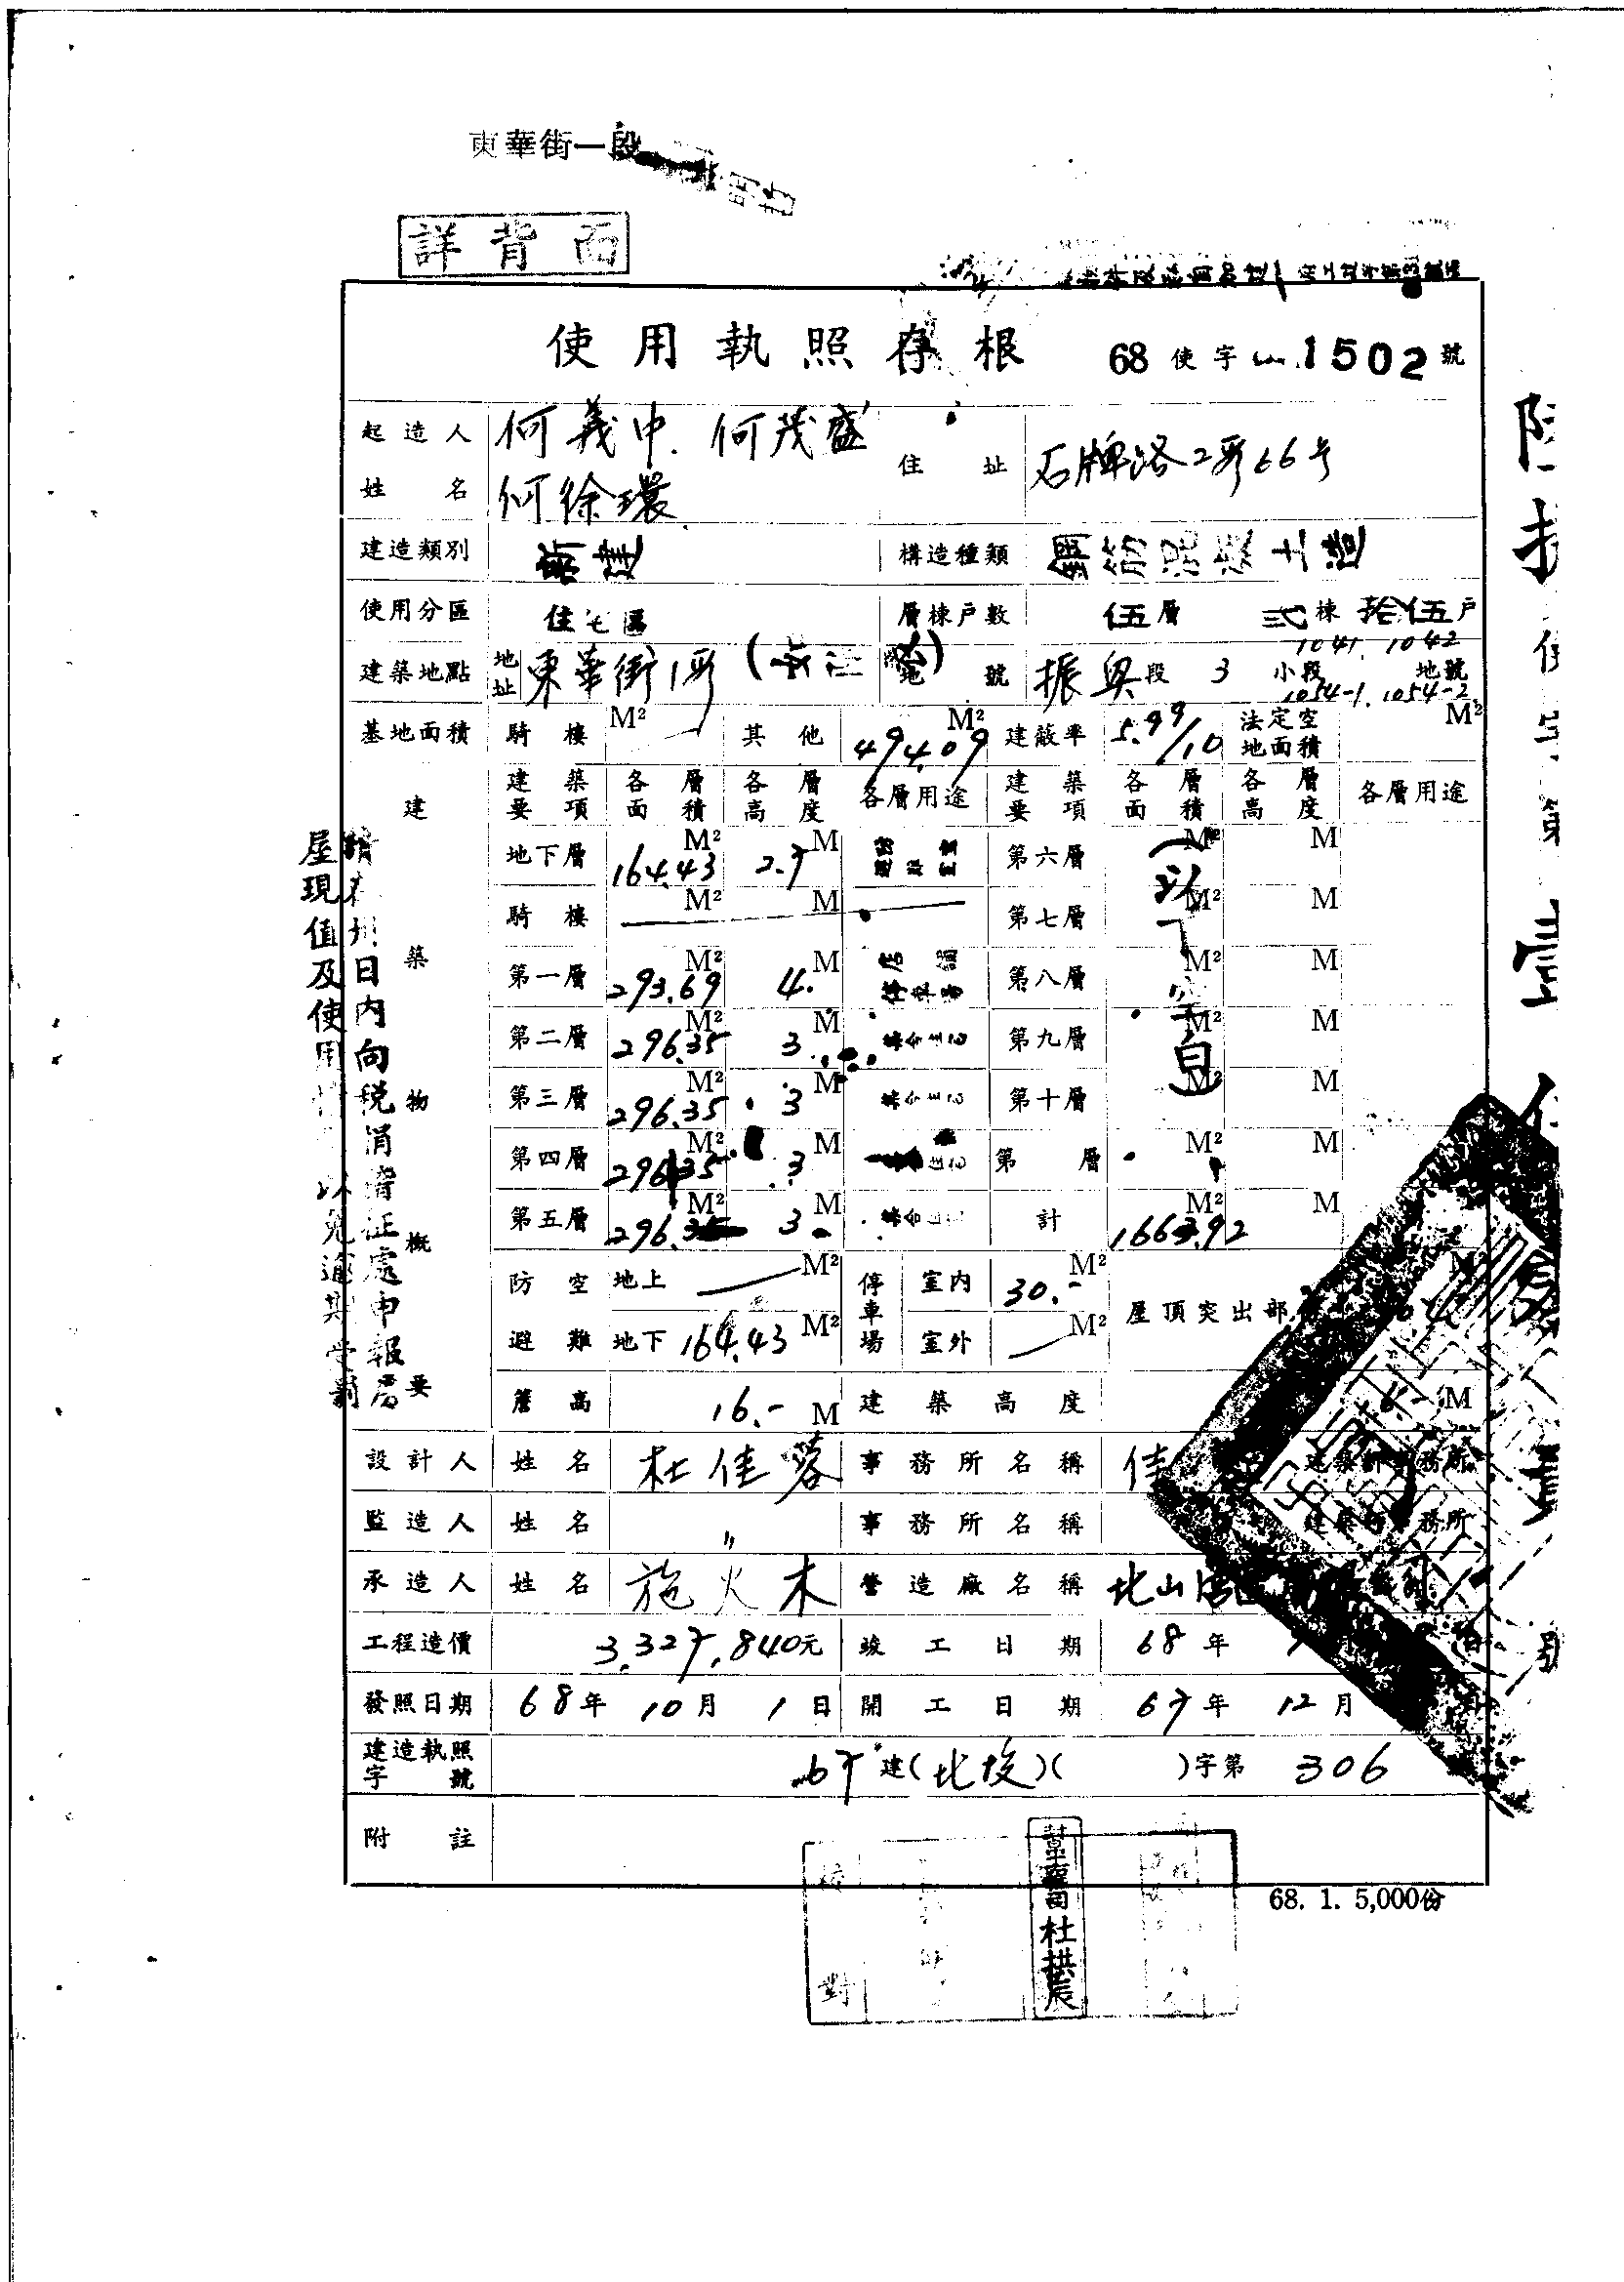 東華街一段
詳背面
使用執照存根 68使字 1502號
起造人姓名 何義中.何茂盛 何徐環 住址 石牌路2段66号
建造類別 新建 構造種類 鋼筋混凝土造
使用分區 住宅區 層棟戶數 伍層 弍棟 拾伍戶
建築地點 地址 東華街1段 地號 振興段 3小段 1041.1042 1054-1.1054-2 地號
基地面積 騎樓 M² 其他 494.09 M² 建蔽率 5.99/10 法定空地面積 M²
建築物概要
建築要項 各層面積 各層高度 各層用途 建築要項 各層面積 各層高度 各層用途
地下層 164.43 M² 2.7 M 第六層 M² M
騎樓 M² M 第七層 M² M
第一層 293.69 M² 4. M 第八層 M² M
第二層 296.35 M² 3 M 第九層 M² M
第三層 296.35 M² 3 M 第十層 M² M
第四層 296.35 M² 3 M 第 層 M² M
第五層 296.35 M² 3 M 計 1663.92 M² M
(以下空白)
防空避難 地上 M² 停車場 室內 30.- M² 屋頂突出部
地下 164.43 M² 室外 M²
簷高 16.- M 建築高度 M
設計人 姓名 杜佳蓉 事務所名稱 佳 建築師事務所
監造人 姓名 〃 事務所名稱 建築師事務所
承造人 姓名 施火木 營造廠名稱 北山
工程造價 3,327,840元 竣工日期 68年
發照日期 68年10月1日 開工日期 67年12月
建造執照字號 67建(北投)( )字第 306
附註
請在卅日內向稅捐稽征處申報房
屋現值及使用情 以免逾期受罰
68. 1. 5,000份
校對
杜拱辰